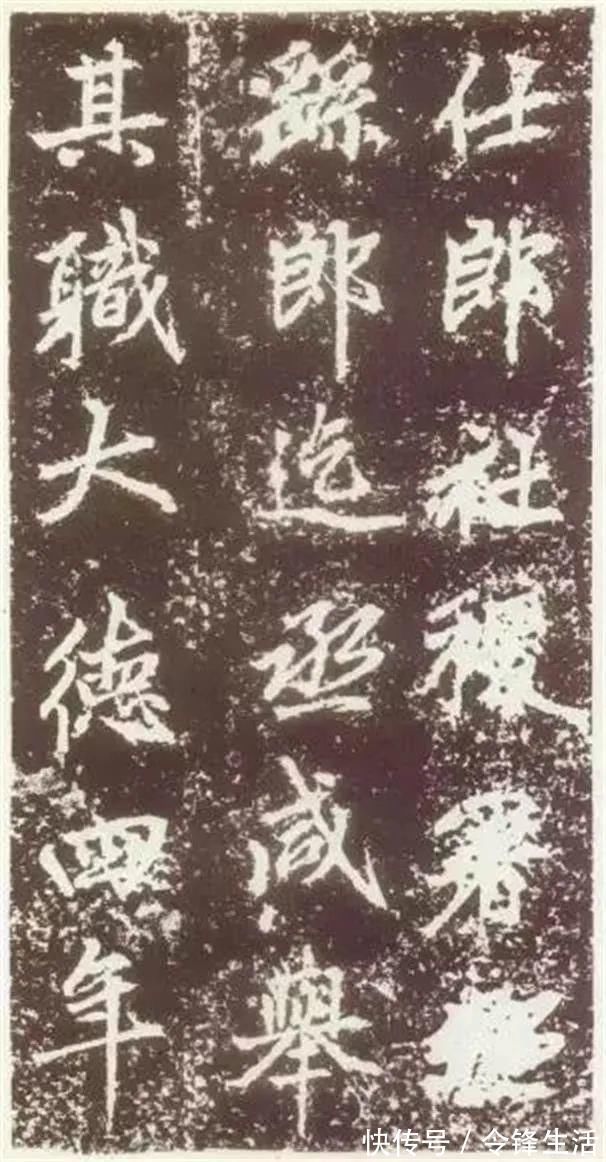 仕郎社稷署
繇郎迄丞咸舉
其職大德四年
快传号/令锋生活